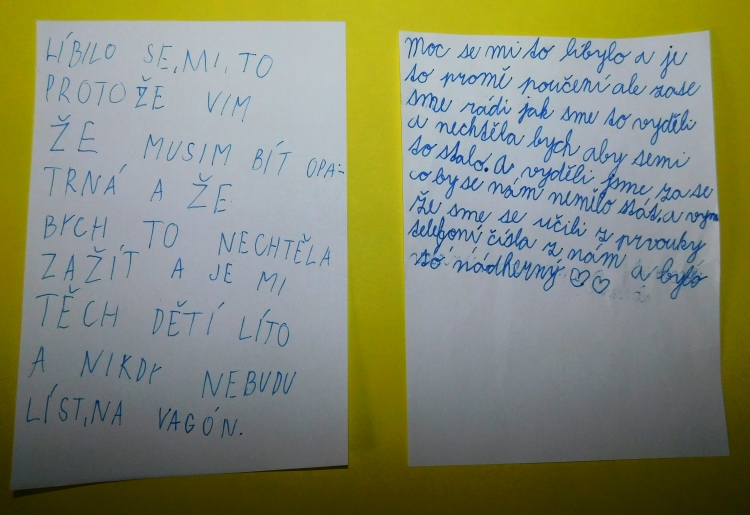 LÍBILO SE, MI, TO
PROTOŽE VIM
ŽE MUSIM BÍT OPA-
TRNÁ A ŽE
BYCH TO NECHTĚLA
ZAŽÍT A JE MI
TĚCH DĚTÍ LÍTO
A NIKDY NEBUDU
LÍST, NA VAGÓN.
Moc se mi to líbylo a je
to promě poučení ale zase
sme radi jak sme to vyděli
a nechtěla bych aby semi
to stalo. A vyděli jsme zase
co by se nám nemělo stát, a vým
že sme se učili z prvouky
telefoní čísla z nám a bylo
to nádherný ♡♡